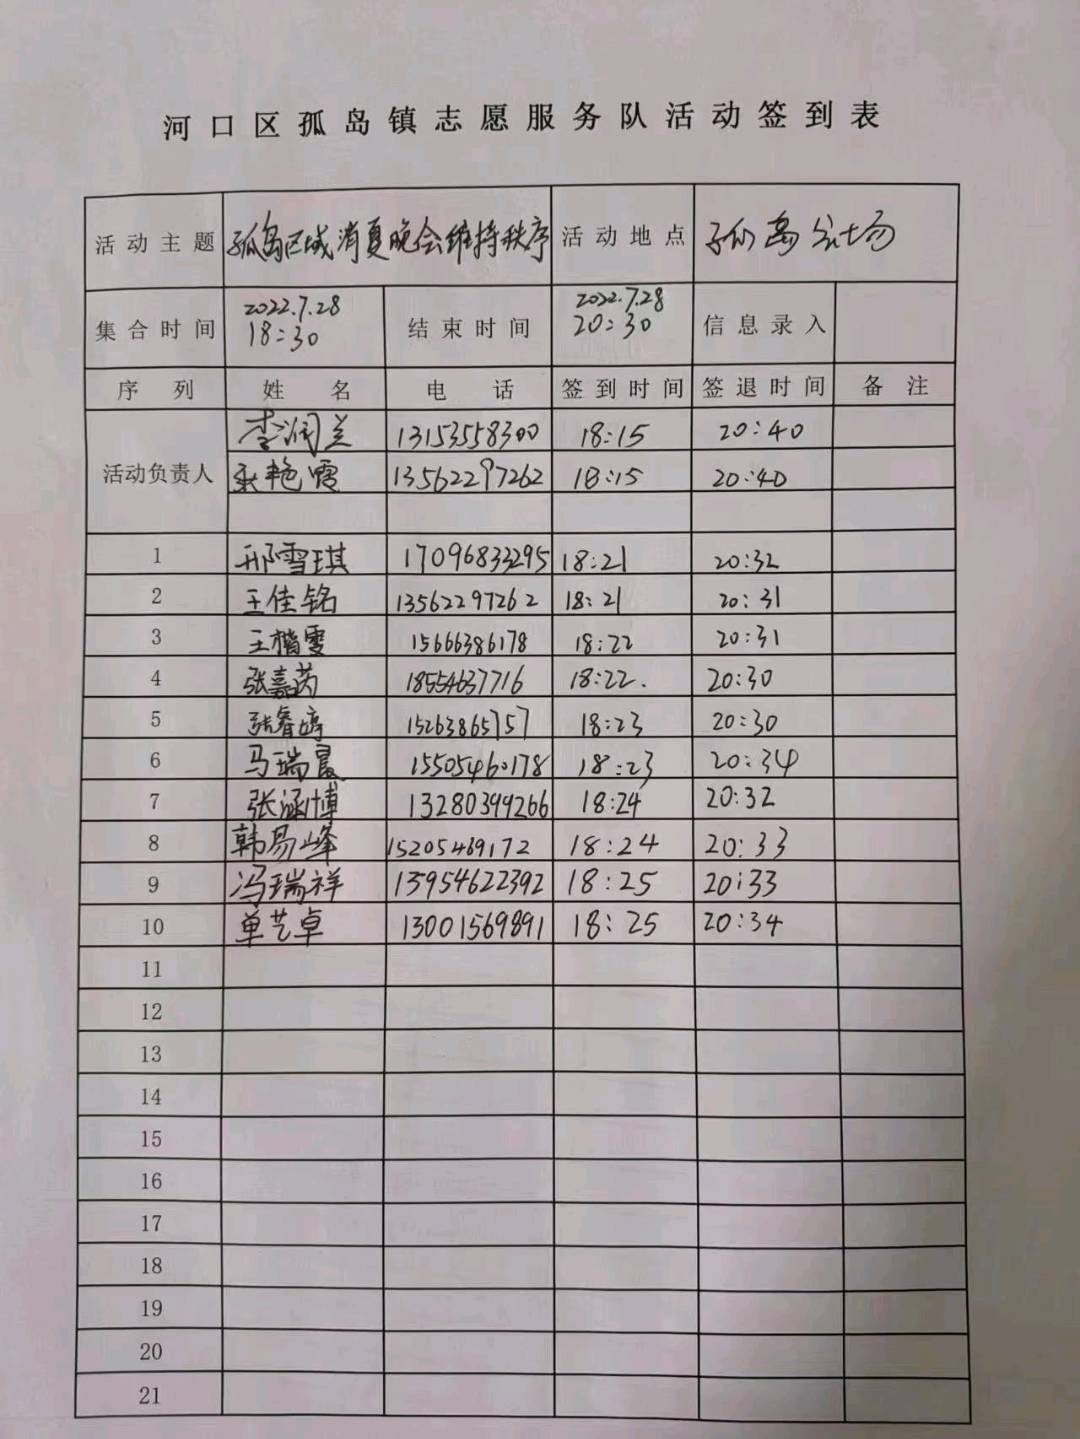 河口区孤岛镇志愿服务队活动签到表
活动主题 孤岛区域消夏晚会维持秩序 活动地点 孤岛广场
集合时间 2022.7.28 18:30 结束时间 2022.7.28 20:30 信息录入
序列 姓名 电话 签到时间 签退时间 备注
活动负责人
李润兰 13153558300 18:15 20:40
艳霞 13562297262 18:15 20:40
1 邢雪琪 17096833295 18:21 20:32
2 王佳铭 13562297262 18:21 20:31
3 王楷雯 15666386178 18:22 20:31
4 张嘉芮 18554637716 18:22. 20:30
5 张睿婷 15263865757 18:23 20:30
6 马瑞晨 15505460178 18:23 20:34
7 张涵博 13280399266 18:24 20:32
8 韩易峰 15205469172 18:24 20:33
9 冯瑞祥 13954622392 18:25 20:33
10 单艺卓 13001569891 18:25 20:34
11
12
13
14
15
16
17
18
19
20
21